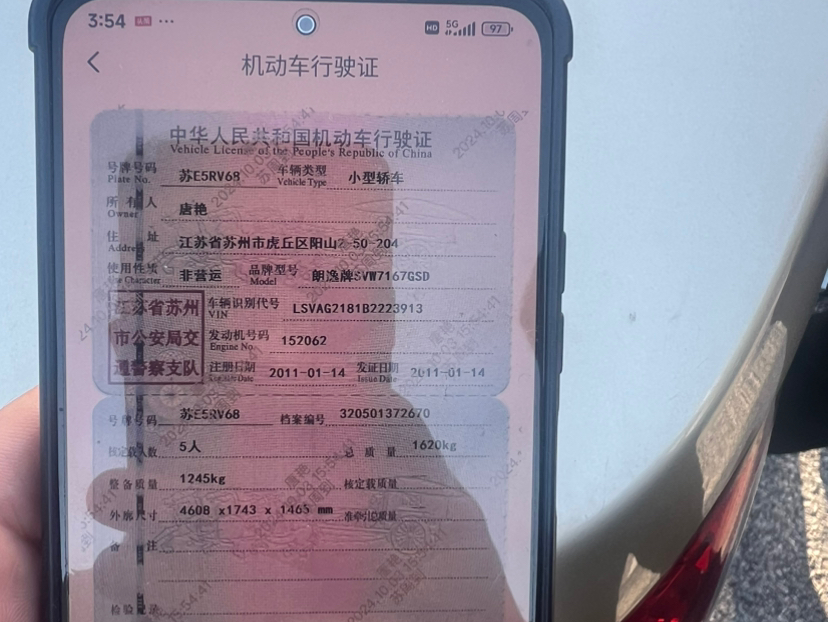 3:54 HD 5G 97
机动车行驶证
中华人民共和国机动车行驶证
Vehicle License of the People's Republic of China
号牌号码 苏E5RV68 车辆类型 小型轿车
Plate No. Vehicle Type
所有人 唐艳
Owner
住址 江苏省苏州市虎丘区阳山2-50-204
Address
使用性质 非营运 品牌型号 朗逸牌SVW7167GSD
Use Character Model
江苏省苏州 车辆识别代号 LSVAG2181B2223913
VIN
市公安局交 发动机号码 152062
Engine No.
通警察支队 注册日期 2011-01-14 发证日期 2011-01-14
Issue Date
号牌号码 苏E5RV68 档案编号 320501372670
核定载人数 5人 总质量 1620kg
整备质量 1245kg 核定载质量
外廓尺寸 4608 x1743 x 1465 mm 准牵引总质量
备注
检验记录